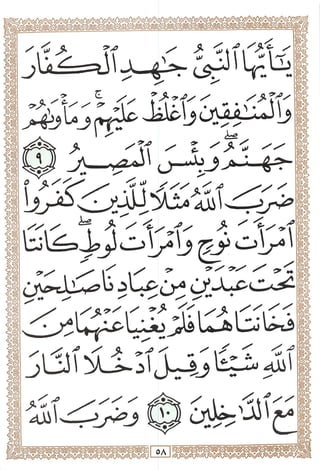 يَـٰٓأَيُّهَا ٱلنَّبِىُّ جَـٰهِدِ ٱلۡكُفَّارَ
وَٱلۡمُنَـٰفِقِينَ وَٱغۡلُظۡ عَلَيۡهِمۡۚ وَمَأۡوَىٰهُمۡ
جَهَنَّمُۖ وَبِئۡسَ ٱلۡمَصِيرُ ٩
ضَرَبَ ٱللَّهُ مَثَلًا لِّلَّذِينَ كَفَرُوا۟
ٱمۡرَأَتَ نُوحٍ وَٱمۡرَأَتَ لُوطٍۖ كَانَتَا
تَحۡتَ عَبۡدَيۡنِ مِنۡ عِبَادِنَا صَـٰلِحَيۡنِ
فَخَانَتَاهُمَا فَلَمۡ يُغۡنِيَا عَنۡهُمَا مِنَ
ٱللَّهِ شَيۡـًٔا وَقِيلَ ٱدۡخُلَا ٱلنَّارَ
مَعَ ٱلدَّٰخِلِينَ ١٠ وَضَرَبَ ٱللَّهُ
٥٨